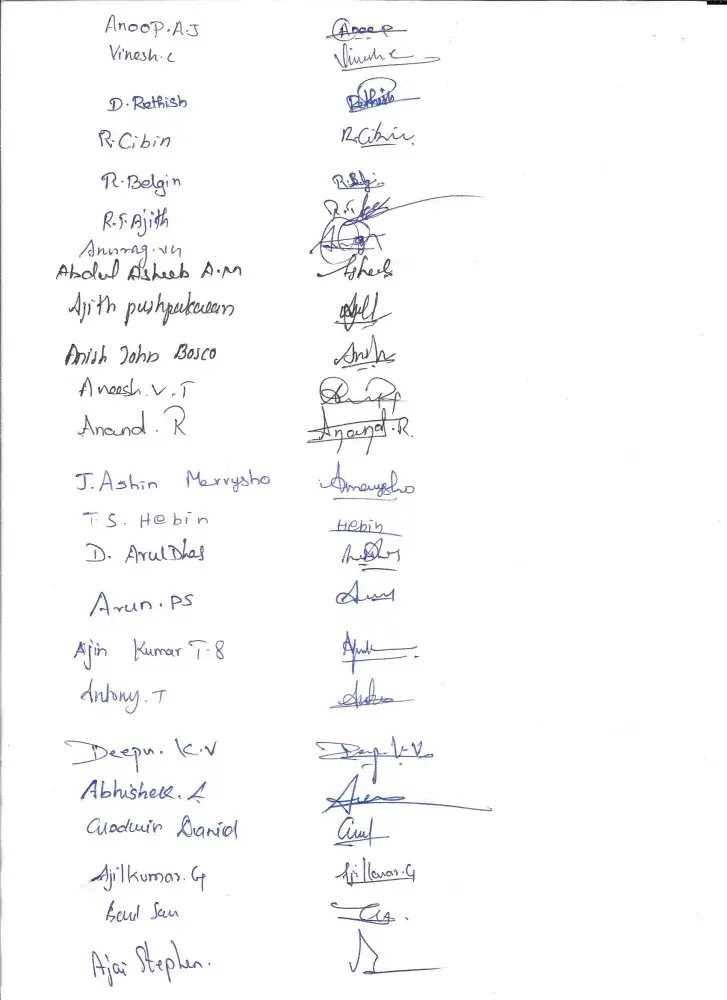 Anoop.A.J Anoop
Vinesh.c Vinesh c
D. Rethish Rethish
R. Cibin R. Cibin
R. Belgin R. Belgi
R.S. Ajith R.S.
Anurag.vn
Abdul Asheeb A.M Asheeb
Ajith pushpakaran
Anish John Bosco Anish
Aneesh.V.T
Anand. R Anand.R.
J. Ashin Merrysho Amerysho
T.S. Hebin Hebin
D. ArulDhas
Arun.PS Arun
Ajin Kumar T.S
Antony.T
Deepu. K.V Deepu K.V.
Abhishek. A
Godwin Daniel
Ajilkumar.G Ajilkumar.G
Ajai Stephen.